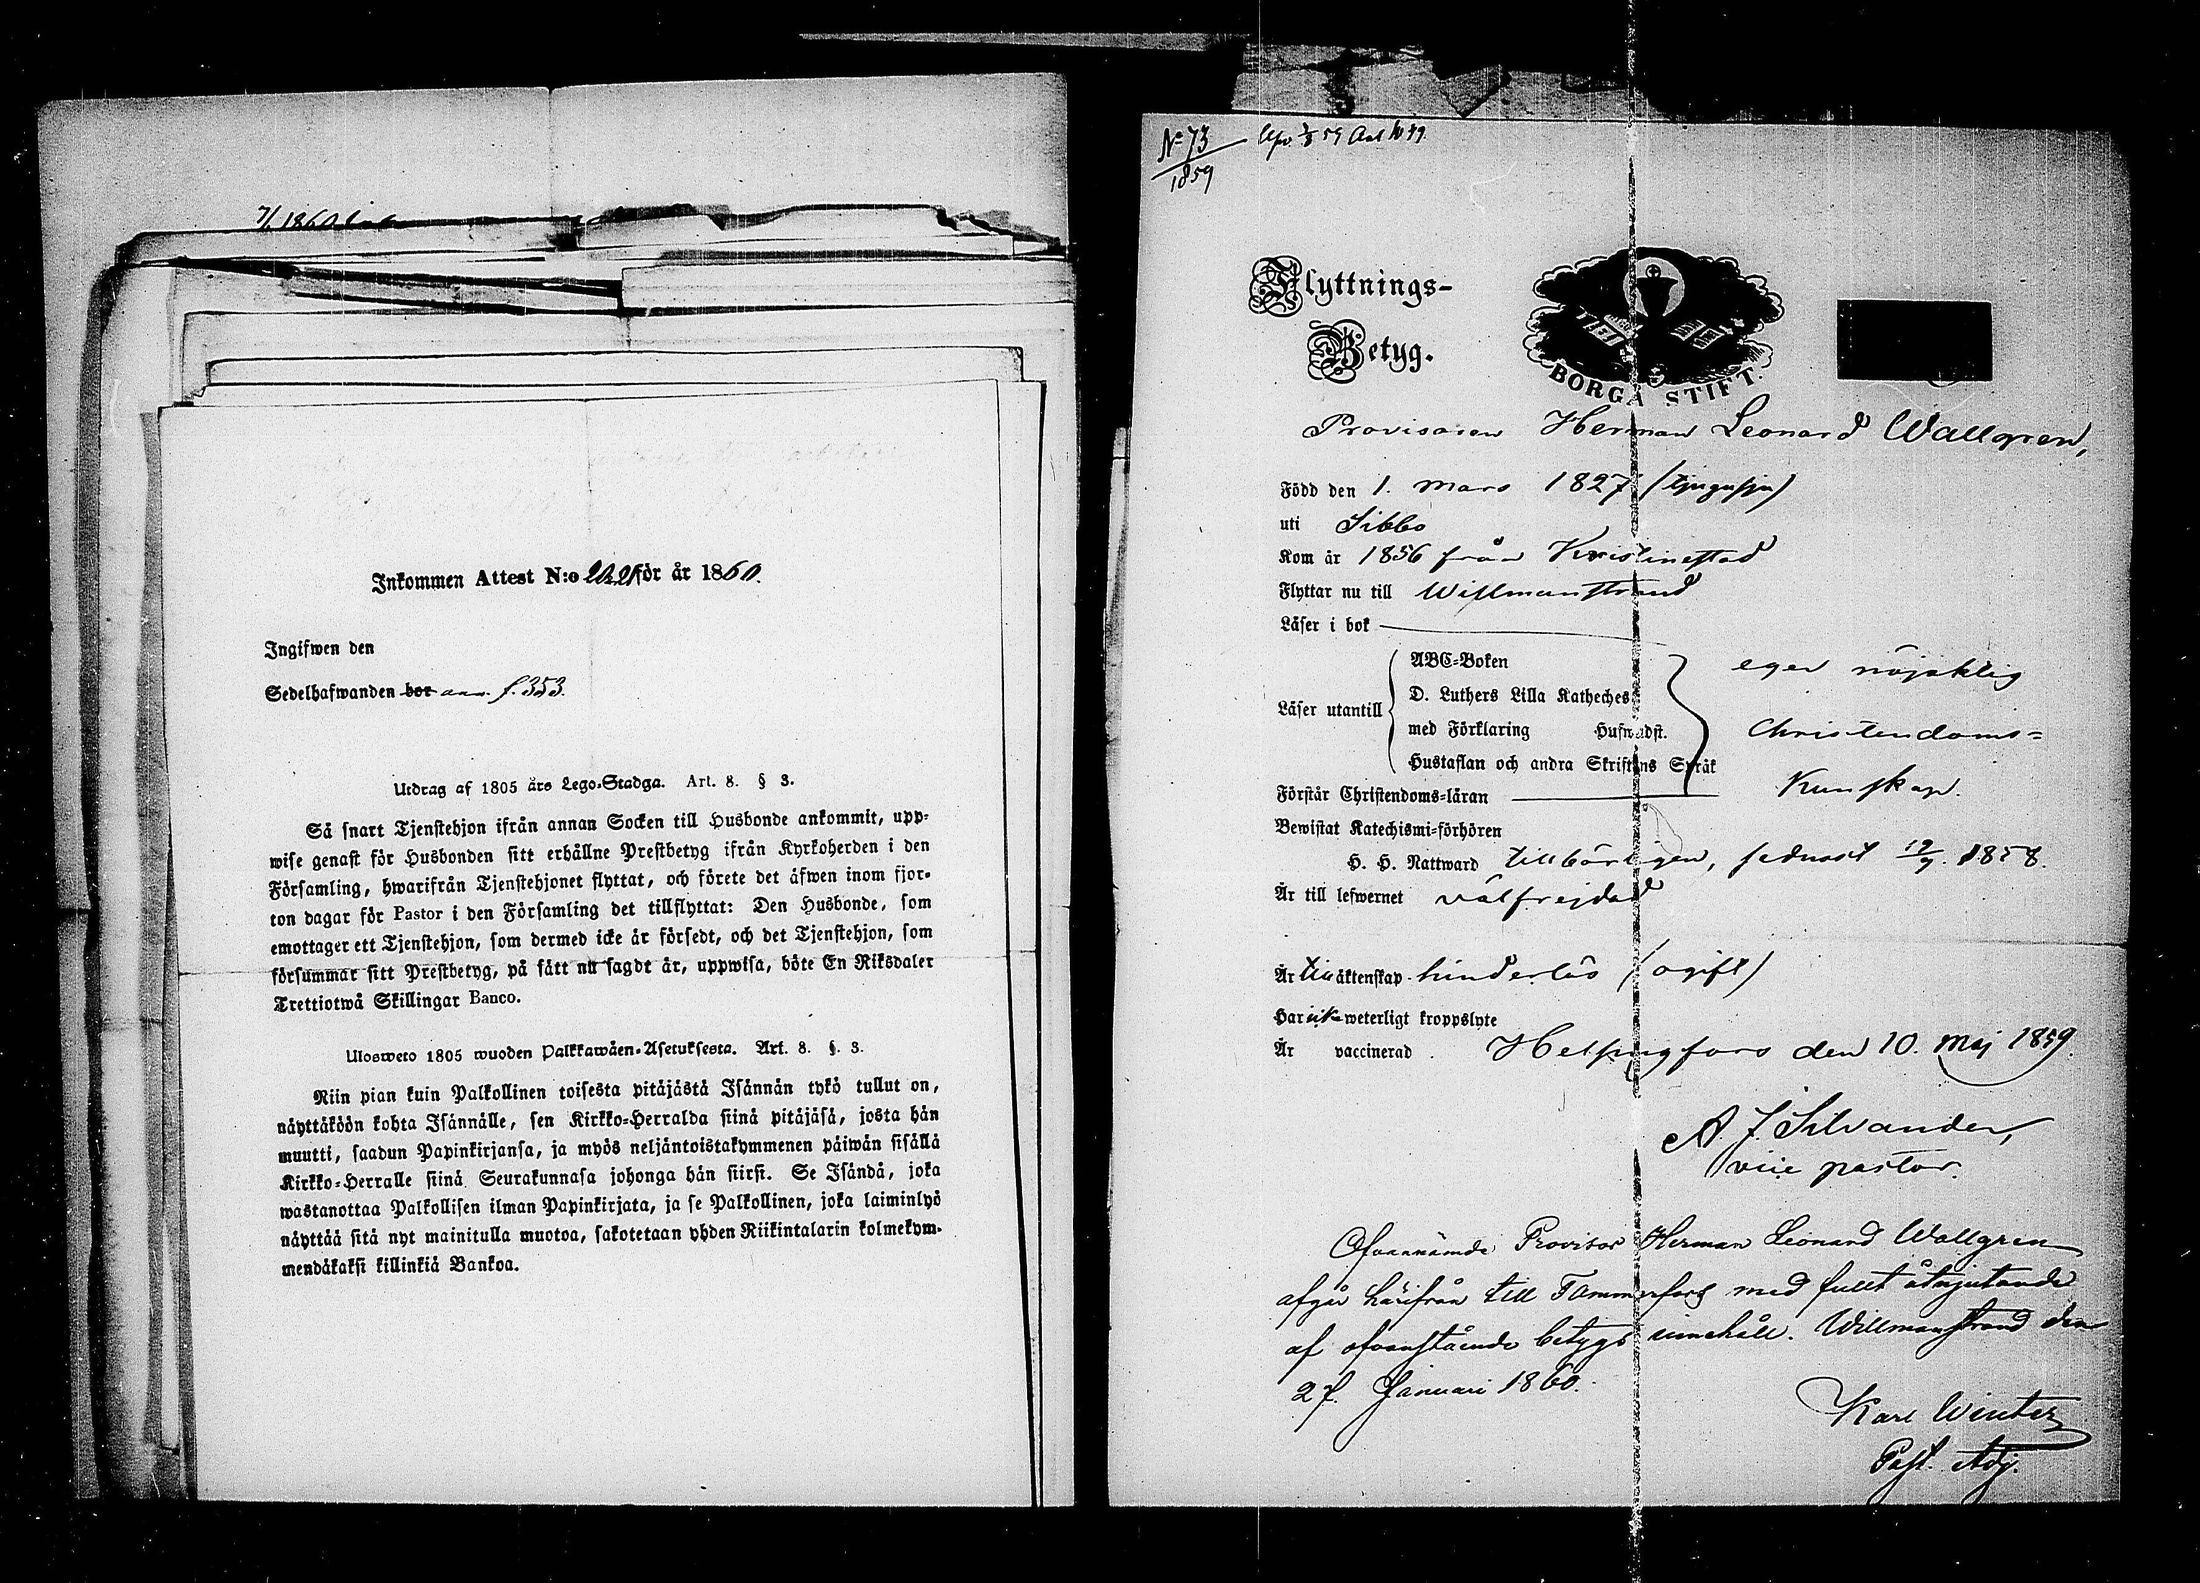 7/. 1860
Inkommen Attest N:o 202 för år 1860.
Ingifwen den
Sedelhafwanden bor ann. f. 353.
Utdrag af 1805 års Lego-Stadga. Art. 8. § 3.
Så snart Tjenstehjon ifrån annan Socken till Husbonde ankommit, upp-
wise genast för Husbonden sitt erhållne Prestbetyg ifrån Kyrkoherden i den
Församling, hwarifrån Tjenstehjonet flyttat, och förete det äfwen inom fjor-
ton dagar för Pastor i den Församling det tillflyttat: Den Husbonde, som
emottager ett Tjenstehjon, som dermed icke är försedt, och det Tjenstehjon, som
försummar sitt Prestbetyg, på sätt nu sagdt är, uppwisa, böte En Riksdaler
Trettiotwå Skillingar Banco.
Ulosweto 1805 wuoden Palkkawäen-Asetuksesta. Art. 8. §. 3.
Niin pian kuin Palkollinen toisesta pitäjästä Isännän tykö tullut on,
näyttäköön kohta Isännälle, sen Kirkko-Herralda siinä pitäjäsä, josta hän
muutti, saadun Papinkirjansa, ja myös neljäntoistakymmenen päiwän sisällä
Kirkko-Herralle siinä Seurakunnasa johonga hän siirsi. Se Isändä, joka
wastanottaa Palkollisen ilman Papinkirjata, ja se Palkollinen, joka laiminlyö
näyttää sitä nyt mainitulla muotoa, sakotetaan yhden Riikintalarin kolmekym-
mendäkaksi killinkiä Bankoa.
No 73
1859
Flyttnings-
Betyg.
BORGÅ STIFT.
Provisoren Herman Leonard Wallgren,
Född den 1. Mars 1827 (tjugusju)
uti Sibbo
Kom år 1856 från Kristinestad
Flyttar nu till Willmanstrand
Läser i bok
Läser utantill
ABC-Boken
D. Luthers Lilla Katheches
med Förklaring Hufwudst.
Hustaflan och andra Skriftens Språk
eger nöjaktig
Christendoms=
Kunskap.
Förstår Christendoms-läran
Bewistat Katechismi-förhören
H. H. Nattward tillbörligen, sednast 12/9. 1858.
Är till lefwernet välfrejdad
Är till äktenskap hinderlös (ogift)
Har ick weterligt kroppslyte
Är vaccinerad. Helsingfors den 10. Maj 1859.
A. J. Silvander,
vice pastor.
Ofvannämde Provisor Herman Leonard Wallgren
afgår härifrån till Tammerfors med fullt åtnjutande
af ofvanstående betygs innehåll. Willmanstrand den
27. Januari 1860.
Karl Winter
Past. Adj.